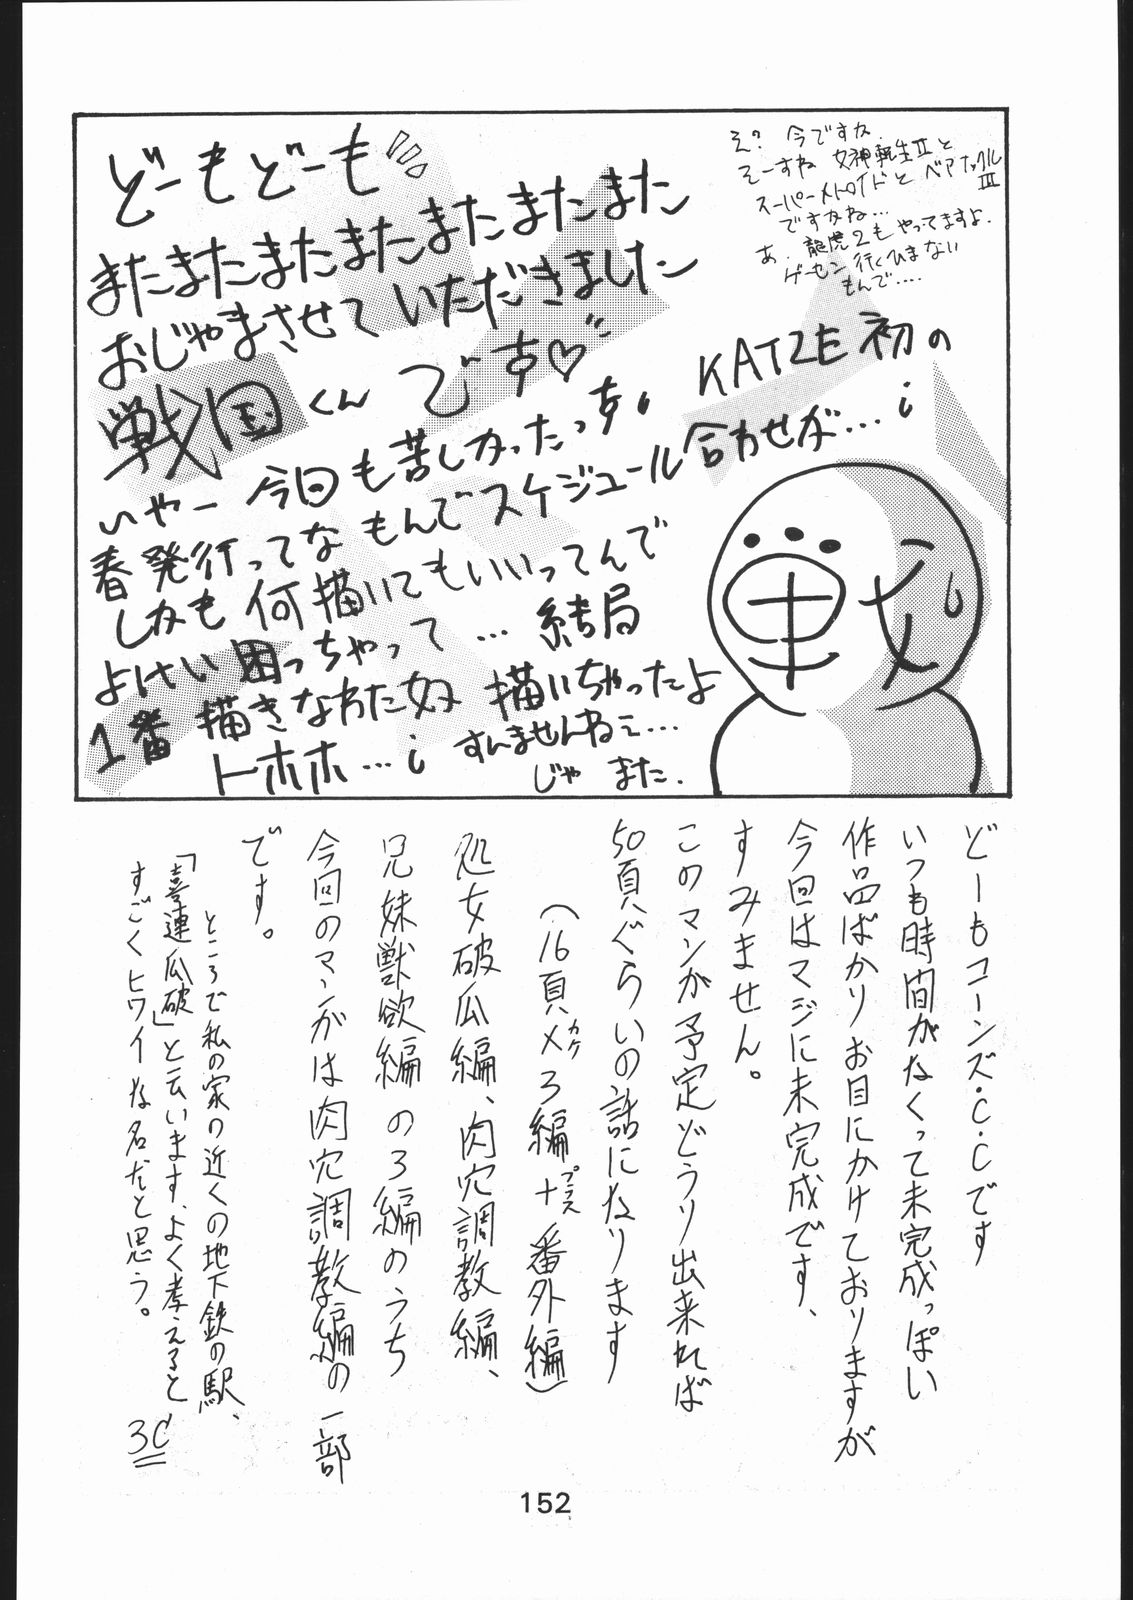 どーもどーも
またまたまたまたまたまたまた
おじゃまさせていただきました
戦国くんです♡
え?今ですか
そーすね 女神転生Ⅱと
スーパーメトロイドとベアナックル
Ⅲ
ですかね…
あ、龍虎2もやってますよ。
ゲーセン行くひまない
もんで‥‥
いやー今回も苦しかったっす。KATZE初の
春発行ってなもんでスケジュール合わせが…;
しかも何描いてもいいってんで
よけい困っちゃって…結局
1番描きなれた奴描いちゃったよ
トホホ…; すんませんねぇ…
じゃ また.
どーもコーンズ・C・Cです
いつも時間がなくって未完成っぽい
作品ばかりお目にかけておりますが
今回はマジに未完成です、
すみません。
このマンガ予定どうり出来れば
50頁ぐらいの話になります
(16頁×カケ3編+プラス番外編)
処女破瓜編、肉穴調教編、
兄妹獣欲編の3編のうち
今回のマンガは肉穴調教編の一部
です。
ところで私の家の近くの地下鉄の駅、
「喜連瓜破」と云います、よく考えると
すごくヒワイな名だと思う。
3C
152